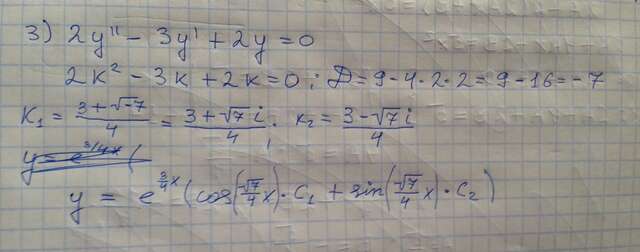 3) 2y'' - 3y' + 2y = 0
2k² - 3k + 2k = 0 ; D = 9 - 4 · 2 · 2 = 9 - 16 = -7
K₁ = (3 + √-7)/4 = (3 + √7 i)/4 ; k₂ = (3 - √7 i)/4
y = e^(3/4x) (
y = e^(3/4 x) (cos(√7/4 x) · C₁ + sin(√7/4 x) · C₂)